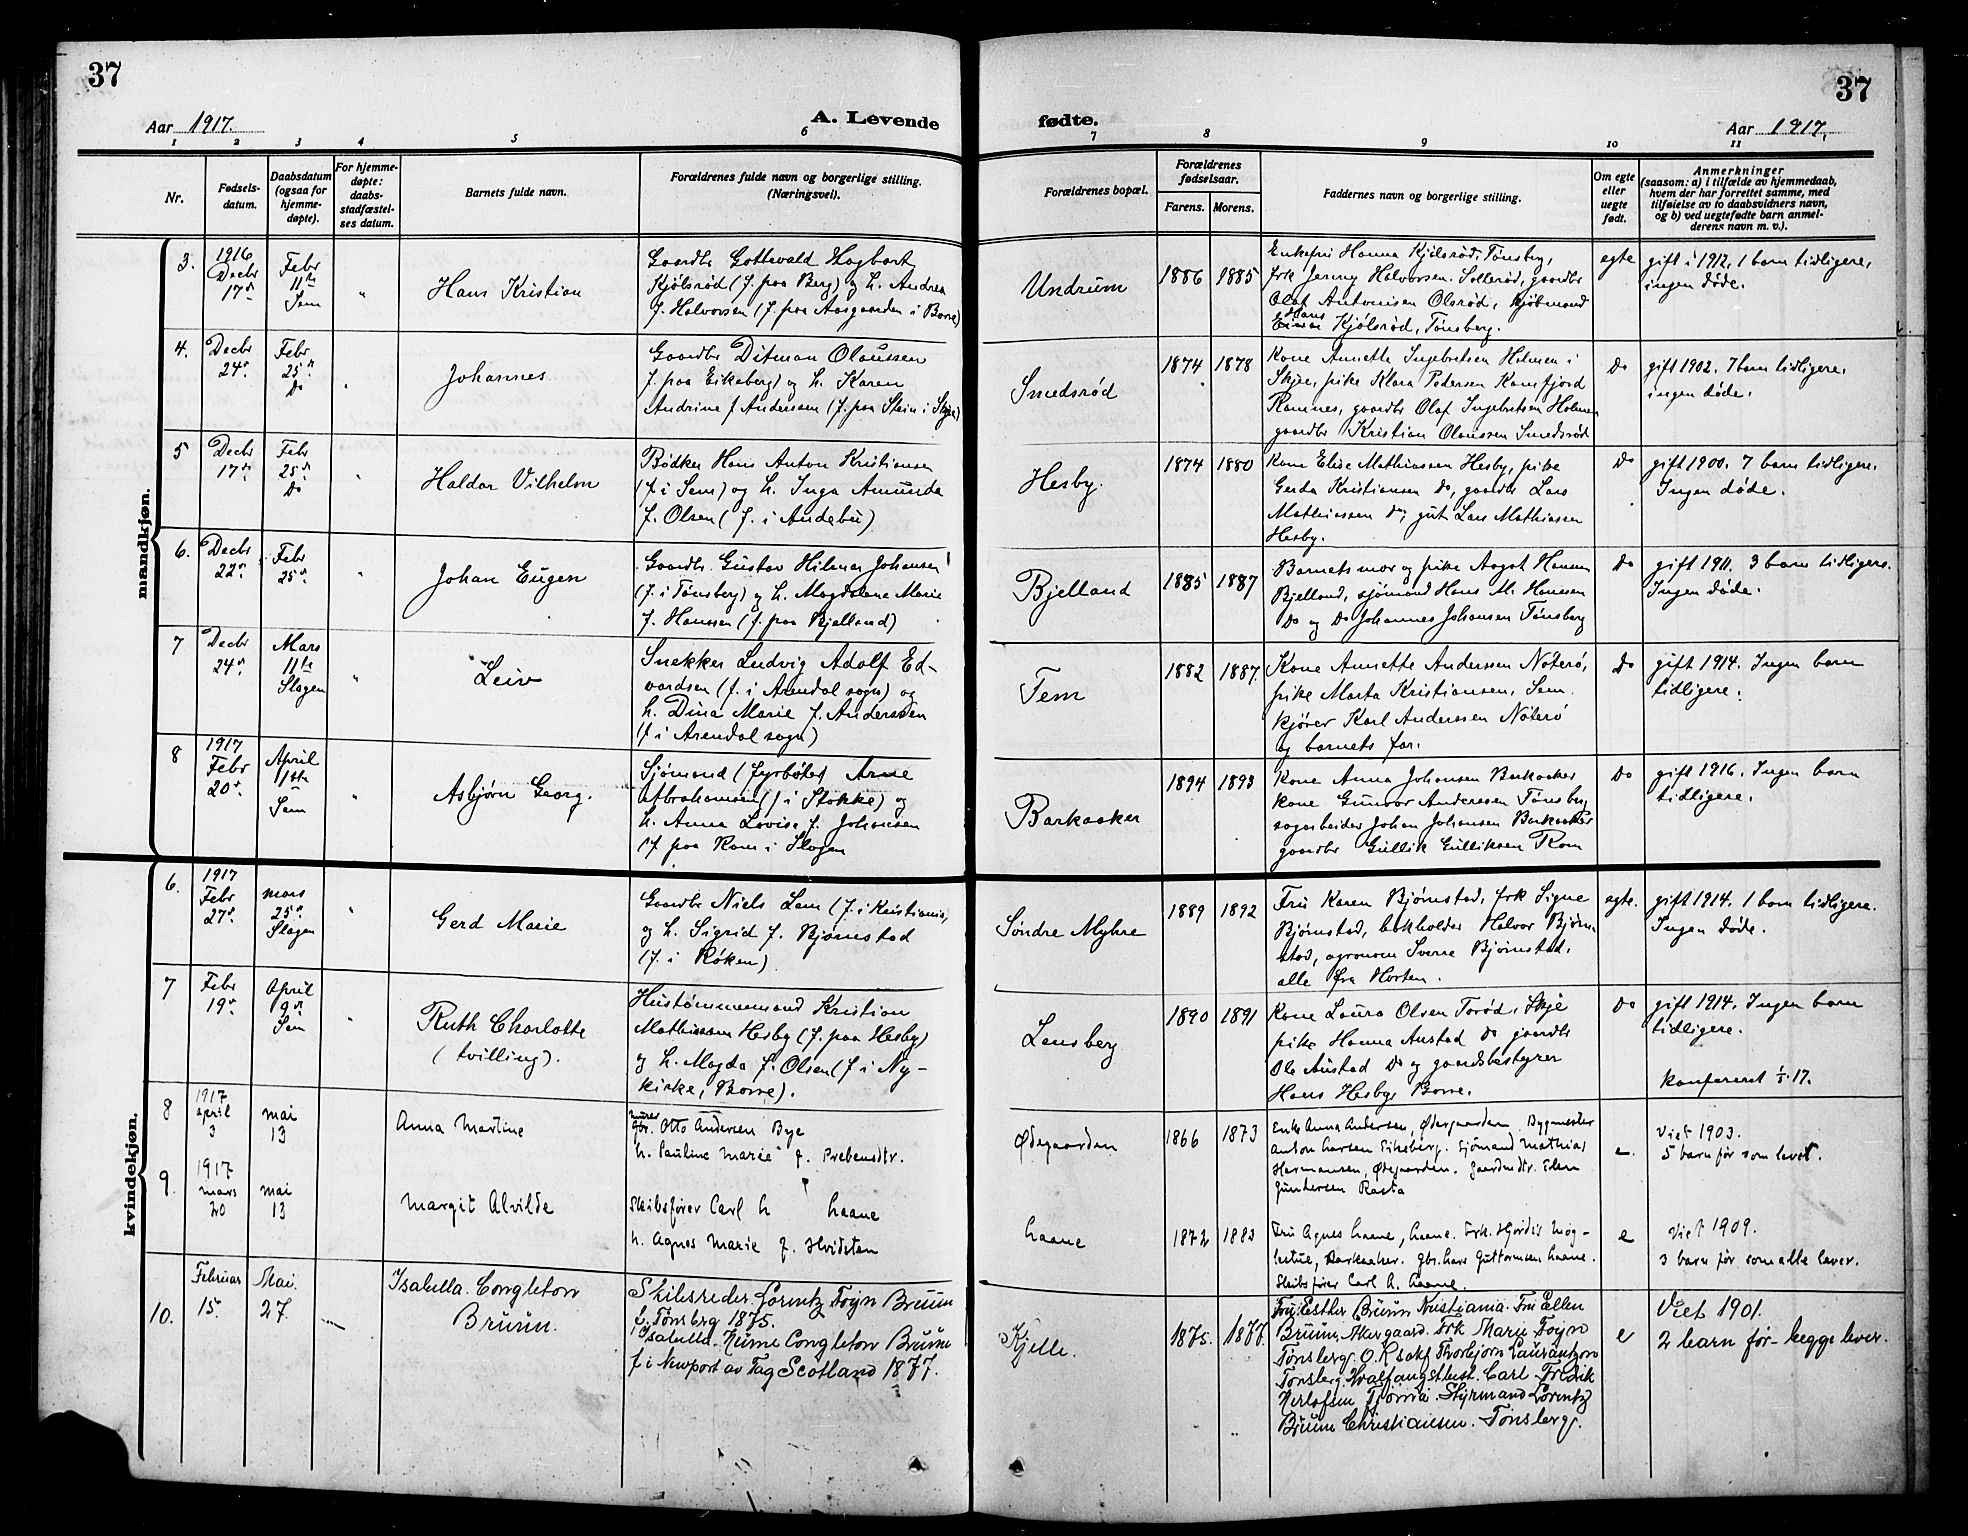 37
Aar 1917.
A. Levende
1 2 3 4 5 6
Nr.
Fødsels-
datum.
Daabsdatum
(ogsaa for
hjemme-
døpte).
For hjemme-
døpte:
daabs-
stadfæstel-
ses datum.
Barnets fulde navn.
Forældrenes fulde navn og borgerlige stilling.
(Næringsvei).
mandkjøn.
3.
1916
Decbr
17de
Febr
11te
Sem
"
Hans Kristian
Gaardbr Gottwald Hagbart
Kjølsrød (f. paa Berg) og h. Andrea
f. Halvorsen (f. paa Aasgaarden i Borre)
4.
Decbr
24de
Febr
25de
Do
Johannes
Gaardbr Ditman Olaussen
f. paa Eikeberg) og h. Karen
Andrine f Anderssen (f. paa Stein i Skjee)
5
Decbr
17de
Febr
25de
Do
Haldor Vilhelm
Bødker Hans Anton Kristiansen
(f i Sem) og h. Inga Amunda
f. Olsen (f. i Andebu)
6.
Decbr
22de
Febr
25de
Johan Eugen
Gaardbr. Gustav Hilmar Johansen
(f. i Tønsberg) og h. Magdalene Marie
f. Hanssen (f. paa Bjelland)
7
Decbr
24de
Mars
11te
Slagen
Leiv
Snekker Ludvig Adolf Ed-
vardsen (f. i Arendal sogn) og
h. Dina Marie f. Anderssen
(f i Arendal sogn)
8
1917
Febr
20de
April
1ste
Sem
Asbjørn Georg.
Sjømand (fyrbøter) Arne
Abrahamsen (f i Stokke) og
h. Anna Lovise f. Johansen
(f paa Rom i Slagen
kvindekjøn.
6.
1917
Febr
27de
mars
25de
Slagen
Gerd Marie
Gaardbr Niels Lem (f. i Kristiania)
og h. Sigrid f. Bjørnstad
(f. i Røken)
7
Febr
19de
April
9de
Sem
Ruth Charlotte
(tvilling).
Hustømmermand Kristian
Mathiassen Hesby (f. paa Hesby)
og h. Magda f. Olsen (f i Ny-
kirke, Borre).
8
1917
april
3
mai
13
Anna Martine
gbr. Otto Andersen Bye
h. Pauline Marie f. Prebensdtr.
9.
1917
mars
20
mai
13
Margit Alvilde
Skibsfører Carl h haane
h. Agnes Marie f. Hvidsten
10.
Februar
15.
Mai.
27.
Isabella. Congleton
Bruun.
Skibsreder Lorentz Foyn Bruun
f. Tønsberg 1875.
Isabella. Hume Congleton Bruun
f i Newport av Tay Scotland 1877.
37
fødte.
Aar 1917.
7 8 9 10 11
Forældrenes bopæl.
Forældrenes
fødselsaar.
Farens. Morens.
Faddernes navn og borgerlige stilling.
Om egte
eller
uegte
født.
Anmerkninger
(saasom: a) i tilfælde av hjemmedaab,
hvem der har forrettet samme, med
tilføielse av to daabsvidners navn,
og b) ved uegtefødte barn anmel-
derens navn m. v.).
Undrum
1886
1885
Enkefru Hanna Kjølsrød, Tønsberg,
frk Jenny Halvorsen Sollerød, gaardbr
Olaf Antonisen Olsrød, kjøbmand
Hans
Kjølsrød, Tønsberg.
egte
gift i 1912, 1 barn tidligere,
ingen døde.
Smedsrød
1874
1878
Kone Annette Ingebretsen Holmen i
Skjee, pike Klara Pedersen Kamfjord
Ramnes, gaardbr Olaf Ingebretsen Holmen
gaardbr Kristian Olaussen Smedsrød
Do
gift 1902. 7 barn tidligere.
ingen døde.
Hesby.
1874
1880
Kone Elise Mathiassen Hesby, pike
Gerda Kristiansen do, gaardbr Lars
Mathiassen do, gut Lars Mathiassen
Hesby.
Do
gift 1900. 7 barn tidligere.
Ingen døde.
Bjelland
1885
1887
Barnets mor og pike Aagot Hansen
Bjelland, sjømand Hans M. Hanssen
Do og Do Johannes Johansen Tønsberg
Do
gift 1911. 3 barn tidligere.
Ingen døde.
Tem
1882
1887.
Kone Annette Anderssen Nøterø,
pike Marta Kristiansen, Sem.
kjører Karl Anderssen Nøterø
og barnets far.
Do
gift 1914. Ingen barn
tidligere.
Barkaaker
1894
1893
Kone Anna Johansen Barkaaker
kone Gunvor Anderssen Tønsberg
sagarbeider Johan Johansen Barkaaker
gaardbr Gullik Gulliksen Rom
Do
gift 1916. Ingen barn
tidligere.
Søndre Myhre
1889
1892
Fru Karen Bjørnstad, frk Signe
Bjørnstad, bokholder Halvor Bjørn-
stad, agronom Sverre Bjørnstad,
alle fra Horten.
egte.
gift 1914. 1 barn tidligere.
Ingen døde.
Lensberg
1890
1891
Kone Laura Olsen Torød, Skje
pike Hanna Austad do gaardbr
Ole Austad do og gaardsbestyrer
Hans Hesby, Borre.
Do
gift 1914. Ingen barn
tidligere.
Konfereret 1/5.17.
Ødegaarden
1866
1873
Enke Anna Andersen, Ødegaarden. Bygmester
Anton Larsen Eikeberg. Sjømand Mathias
Hermansen, Ødegaarden. Gaardmdtr. Elen
Guntersen Rasta
e.
Viet 1903.
5 barn før som lever.
haane
1872
1883
Fru Agnes haane, haane. Frk. Hjørdis Mog-
, Barkaaker. Gbr. hans Guttormsen haane.
Skibsfører Carl A. haane.
e
Viet 1909.
3 barn før som alle lever.
Kjelle.
1875.
1877.
Fru Esther Bruun Kristiania. Fru Ellen
Bruun, Akersgaard. Frk Marie Foyn
Tønsberg. O.R.sakf Thorbjørn Laurantzon
Tønsberg. Hvalfangstbest. Carl Fredrik
Herlofsen Tjømø. Styrmand Lorentz
Bruun Christiansen. Tønsberg.
e
Viet 1901.
2 barn før - begge lever.